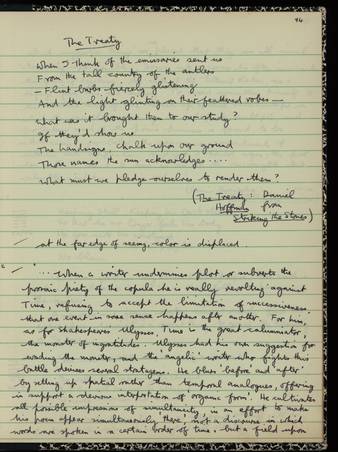 46
The Treaty
When I think of the emissaries sent us
From the tall country of the antlers
— Flint barbs fiercely glistening
And the light glinting on their feathered robes —
What was it brought them to our study?
If they'd show us
The handsigns, chalk upon our ground
Those names the sun acknowledges ....
What must we pledge ourselves to render them?
(The Treaty: Daniel
Hoffman from
Striking the Stones)
— at the far edge of seeing, color is displaced
— "... When a writer undermines plot or subverts the
prosaic piety of the copula he is really revolting against
Time, refusing to accept the limitation of successiveness,
that one event in some sense happens after another. For him,
as for Shakespeare's Ulysses, Time is the great calumniator
the monster of ingratitudes. Ulysses had his own suggestion for
evading the monster, and the 'angelic' writer who fights this
battle devises several stratagems. He blurs 'before' and 'after'
by setting up spatial rather than temporal analogues, offering
in support a devious interpretation of 'organic form'. He cultivates
all possible impressions of simultaneity, in an effort to make
his poem appear simultaneously there, not a discourse in which
words are spoken in a certain order of time, but a field upon